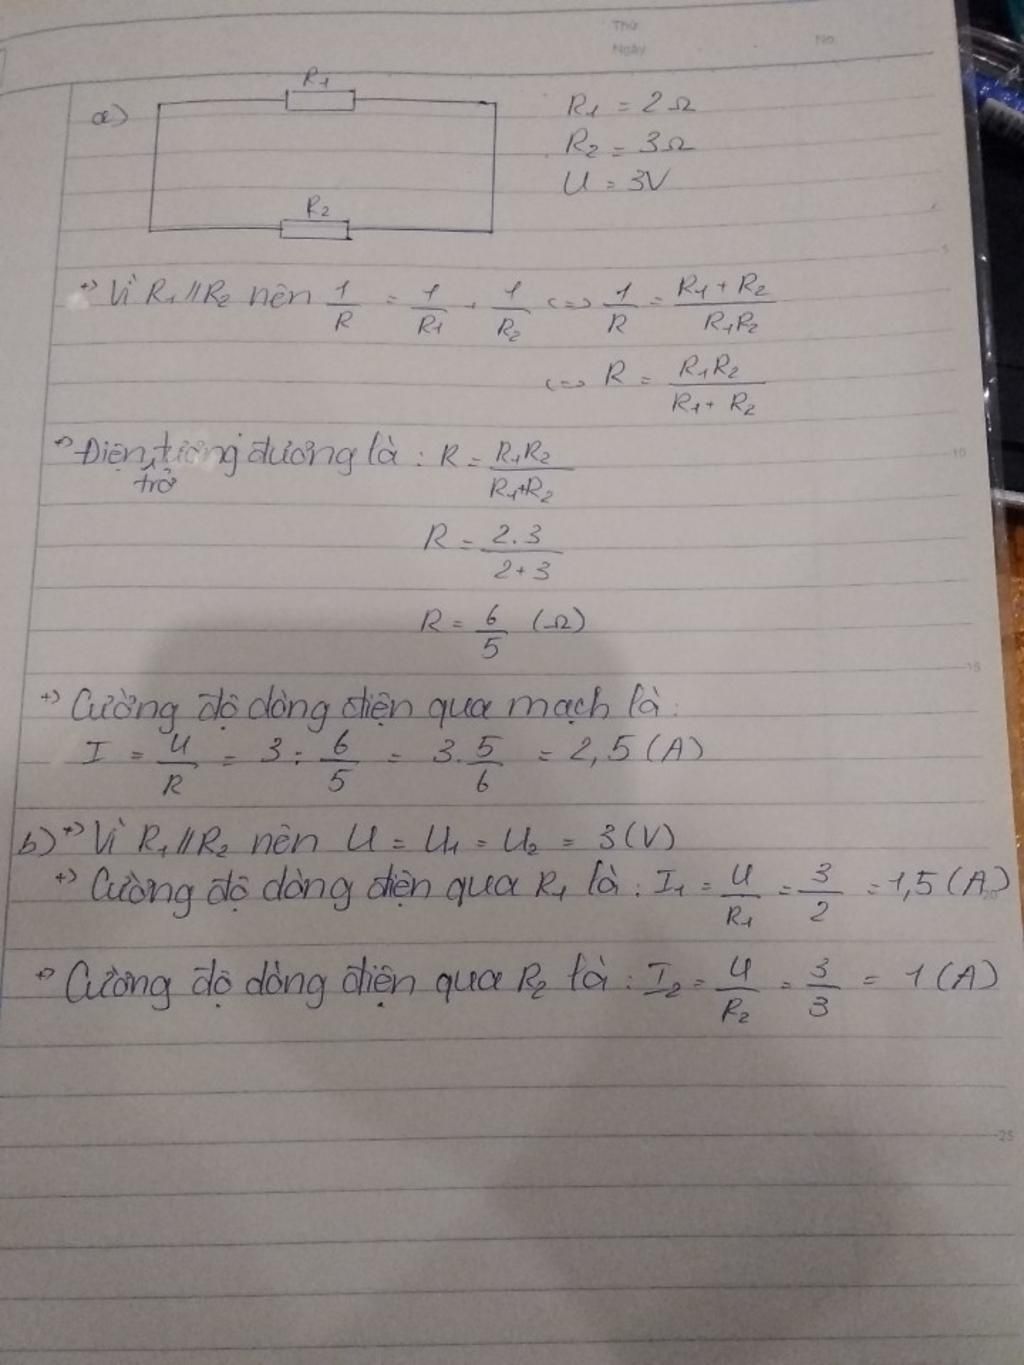 Thứ
Ngày
No
R1
a)
R1 = 2Ω
R2 = 3Ω
U = 3V
R2
+) Vì R1 // R2 nên 1/R = 1/R1 + 1/R2 <=> 1/R = R1 + R2 / R1R2
<=> R = R1R2 / R1 + R2
+) Điện trở tương đương là : R = R1R2 / R1+R2
R = 2.3 / 2+3
R = 6/5 (Ω)
+) Cường độ dòng điện qua mạch là:
I = U/R = 3 : 6/5 = 3.5/6 = 2,5 (A)
b) +) Vì R1 // R2 nên U = U1 = U2 = 3 (V)
+) Cường độ dòng điện qua R1 là : I1 = U/R1 = 3/2 = 1,5 (A)
+) Cường độ dòng điện qua R2 là : I2 = U/R2 = 3/3 = 1 (A)
5
10
15
20
25